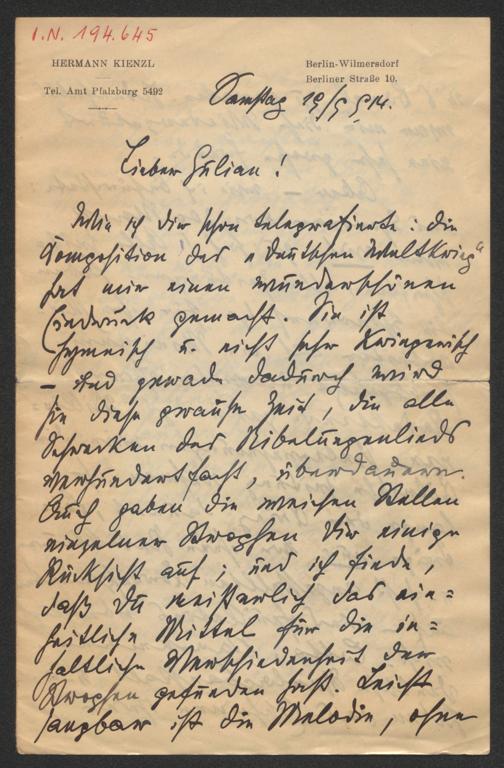 I.N. 194.645
HERMANN KIENZL
Tel. Amt Pfalzburg 5492
Berlin-Wilmersdorf
Berliner Straße 10.
Samstag 19/9 914.
Lieber Julian!
Wie ich dir schon telegrafierte: die
Composition des „Deutschen Weltkrieg“
hat mir einen wunderschönen
Eindruck gemacht. Sie ist
hymnisch u. nicht sehr kriegerisch
– und gerade dadurch wird
sie diese grause Zeit, die alle
Schrecken des Nibelungenlieds
verhundertfacht, überdauern.
Auch gaben die weichen Stellen
einzelner Strophen Dir einige
Rücksicht auf; und ich finde,
daß Du meisterlich das ein=
heitliche Mittel für die in=
haltliche Verschiedenheit der
Strophen gefunden hast. Leicht
sangbar ist die Melodie, ohne